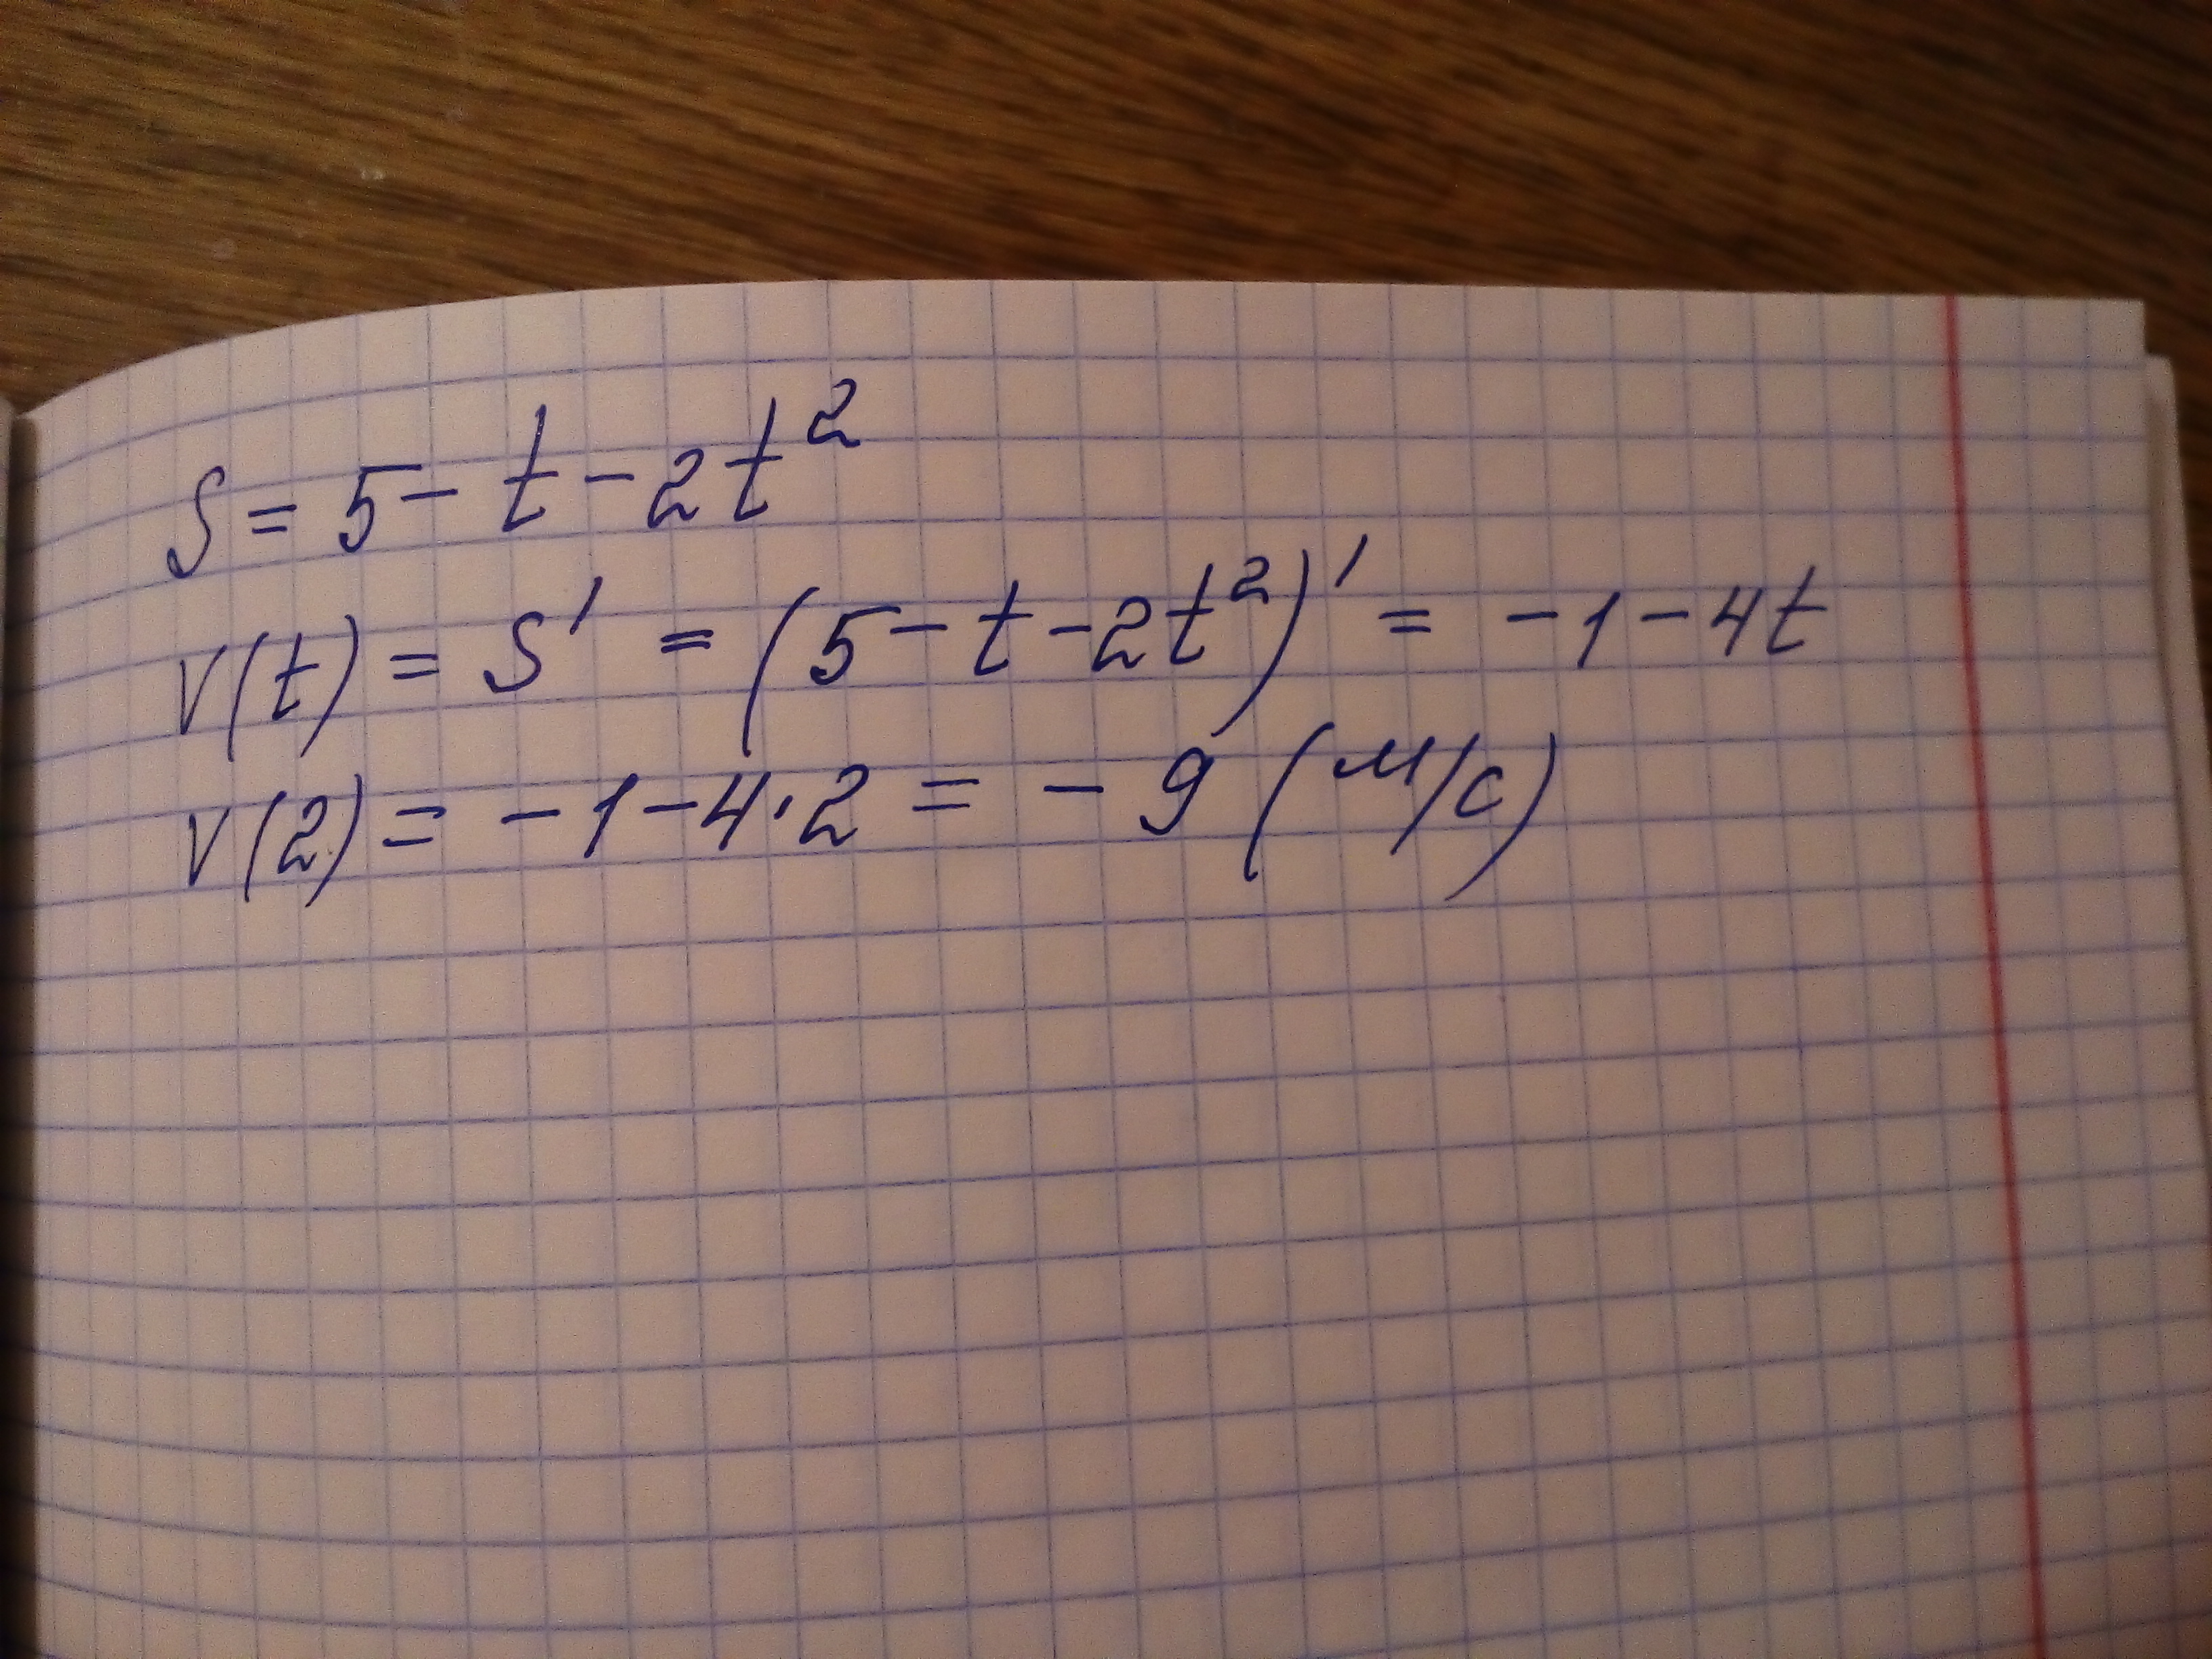 S = 5 - t - 2t²
V(t) = S' = (5 - t - 2t²)' = -1 - 4t
V(2) = -1 - 4·2 = -9 (м/с)